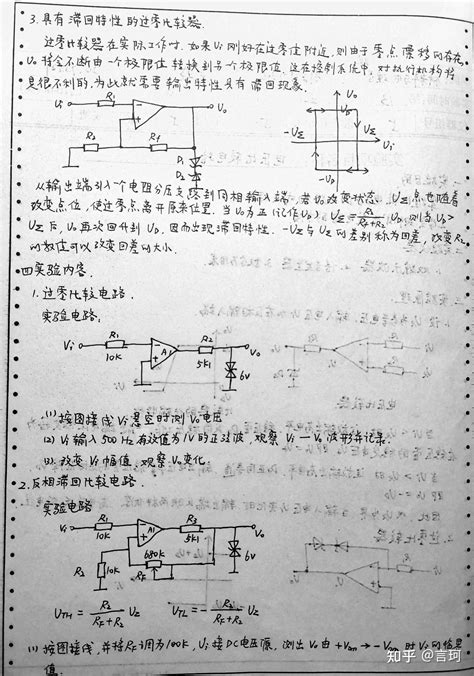 3.具有滞回特性的过零比较器.
过零比较器在实际工作时,如果Vi刚好在过零值附近,则由于零点漂移的存在,
Vo将会不断由一个极限值转换到另一个极限值,这在控制系统中,对执行机构将
是很不利的,为此就需要输出特性具有滞回现象.
Vi
R1
Vo
R2
Rf
D1
D2
Vo
UD
-UΣ
UΣ
Ui
-UD
从输出端引入一个电阻分压支路到同相输入端,若Vo改变状态,UΣ点也随着
改变点位,使过零点离开原来位置.当Vo为正(记作UD), UΣ = R2/(Rf+R2) UD,则当UD>
UΣ后,Vo再次回升到UD,因而出现滞回特性. -UΣ与UΣ的差别称为回差,改变R2
的数值可以改变回差的大小.
四.实验内容.
1.过零比较电路.
实验电路:
Vi
R1
10K
A1
R2
5K1
Vo
6V
(1)按图接线Vi悬空时测Vo电压
(2) Vi输入500Hz有效值为1V的正弦波,观察Vi—Vo波形并记录.
(3)改变Vi幅值,观察Vo变化.
2.反相滞回比较电路.
实验电路
Vi
R1
10K
A1
R3
5K1
Vo
680K
RF
R2
10K
6V
UTH = R2/(RF+R2) UZ
UTL = - R2/(RF+R2) UZ
(1)按图接线,并将RF调为100K,Ui接DC电压源,测出Vo由+Vom→-Vom时Vi的临界
值.
知乎 @言珂